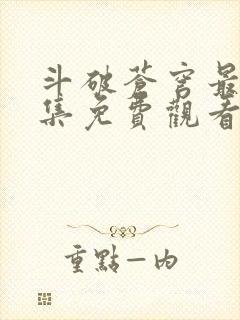 斗破蒼穹最
集免費觀看
重點一內